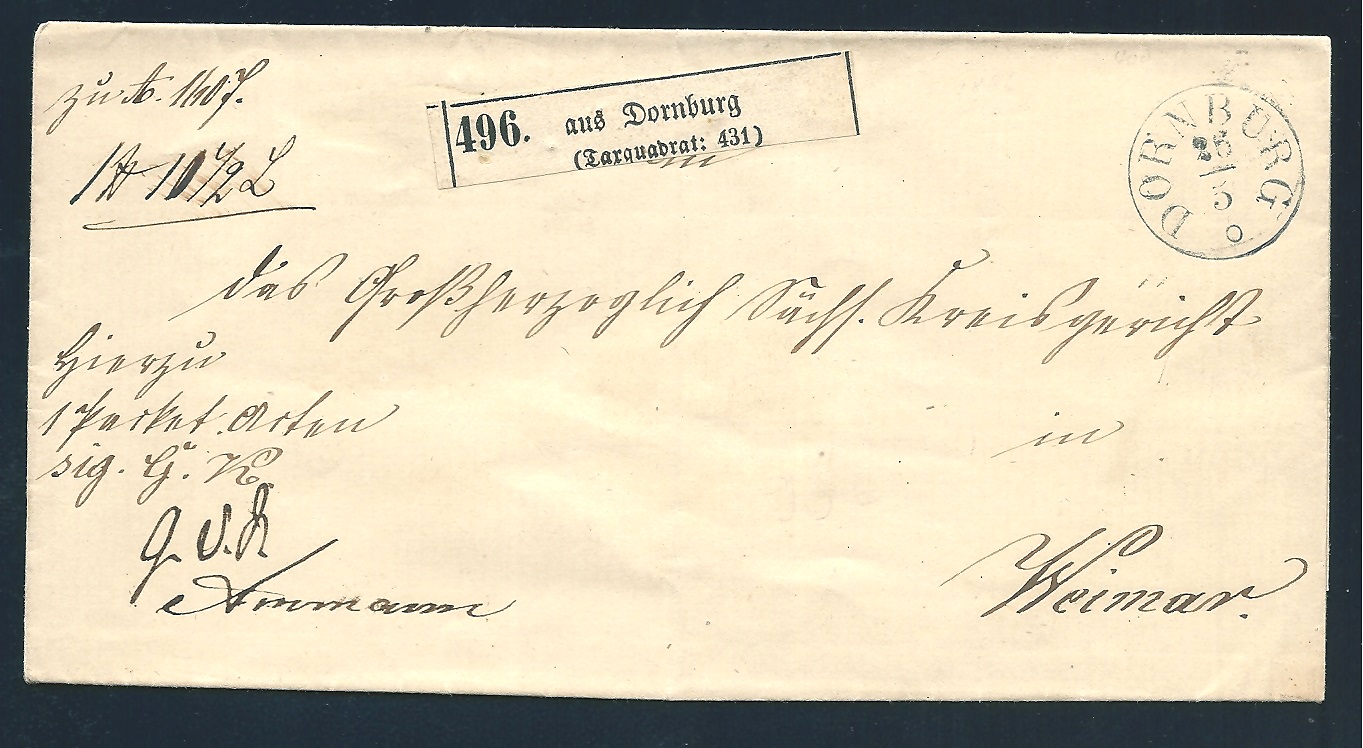 zu N. 1107.
496. aus Dornburg
(Taxquadrat: 431)
DORNBURG
26
5
1 ℔ 10 1/2 L
das Großherzoglich Sächs. Kreisgericht
Hierzu
1 Packet Acten
sig. G. K
in
Weimar.
Ammann